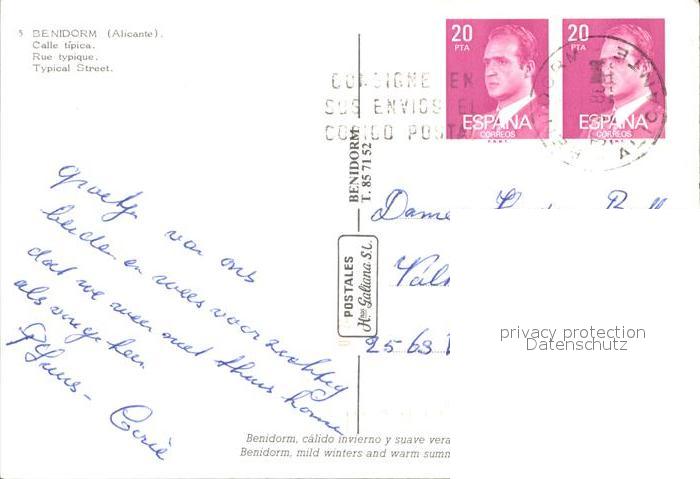 5 BENIDORM (Alicante).
Calle típica.
Rue typique.
Typical Street.
20
PTA
ESPAÑA
CORREOS
20
PTA
ESPAÑA
CORREOS
CONSIGNE EN
SUS ENVIOS EL
CODIGO POSTA
BENIDORM
T. 85 71 52
POSTALES
Hnos Galiana S.L.
van ons
beiden en wees voorzichtig
dat we weer met thuis home
als vorige keer
Dame
2563
privacy protection
Datenschutz
Benidorm, cálido invierno y suave vera
Benidorm, mild winters and warm summ